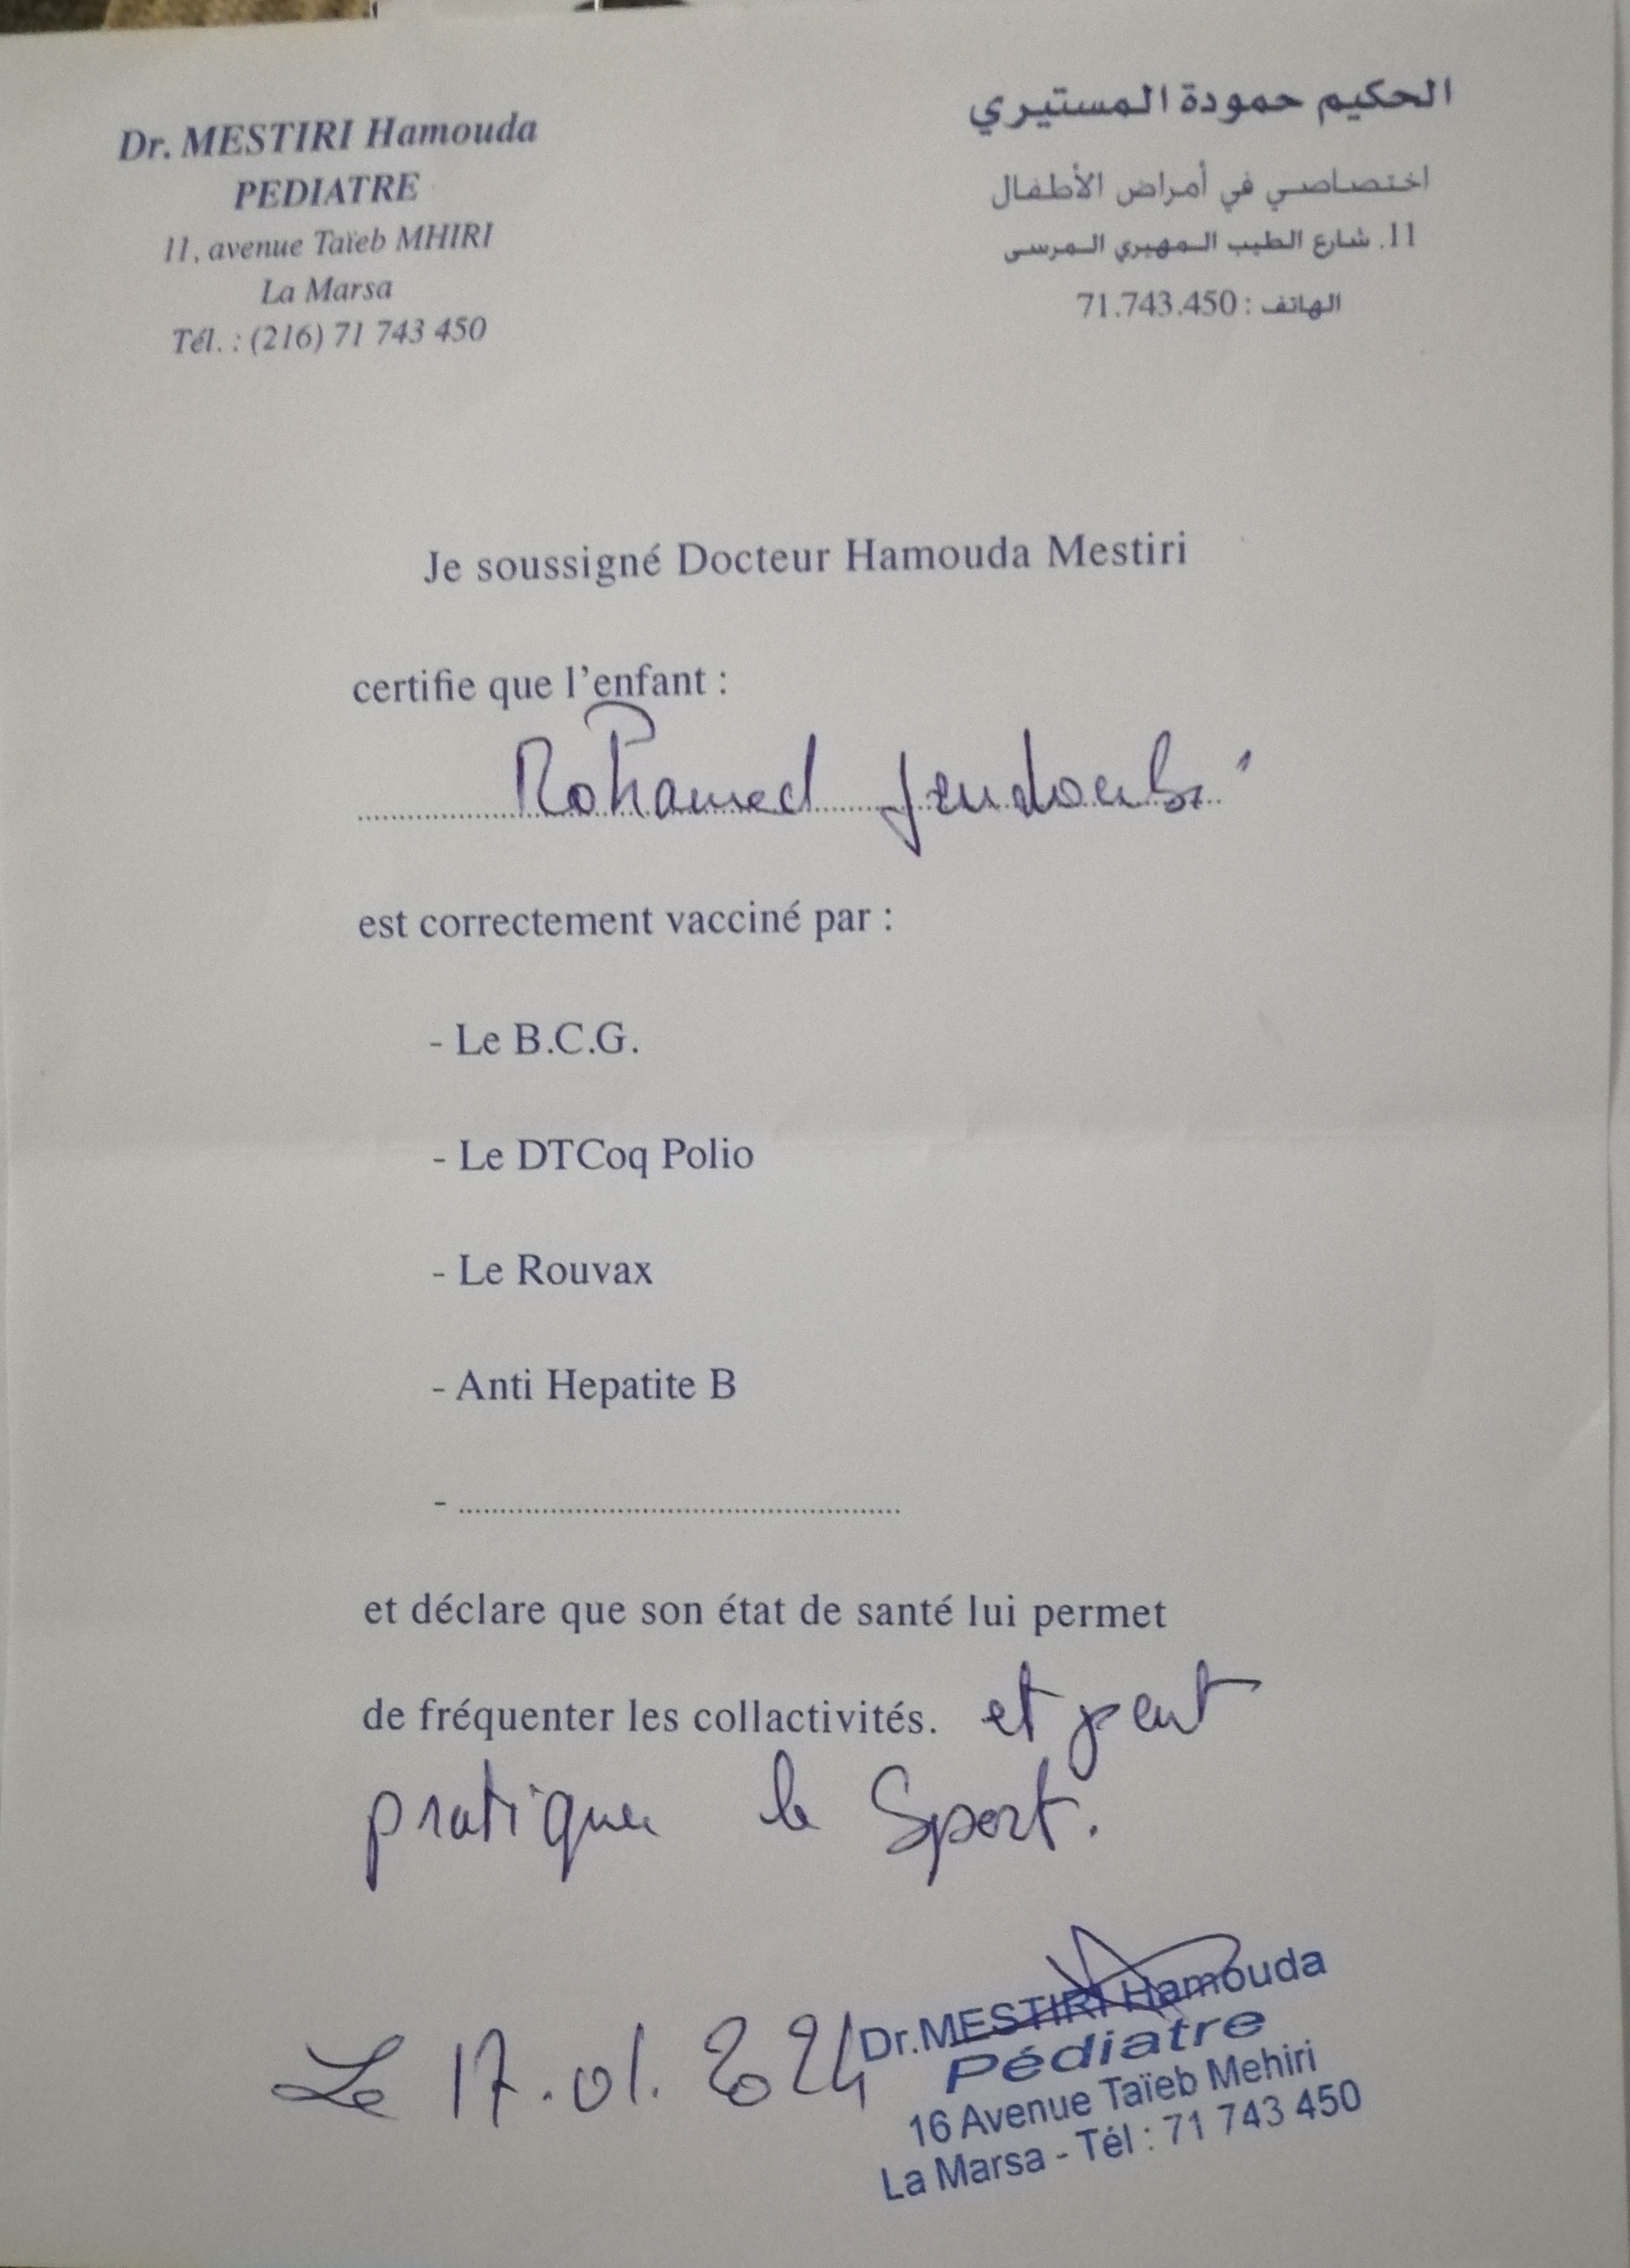 Dr. MESTIRI Hamouda
PEDIATRE
11, avenue Taïeb MHIRI
La Marsa
Tél. : (216) 71 743 450
الحكيم حمودة المستيري
اختصاصي في أمراض الأطفال
11. شارع الطيب المهيري المرسى
الهاتف : 71.743.450
Je soussigné Docteur Hamouda Mestiri
certifie que l'enfant :
Mohamed Jendoubi
est correctement vacciné par :
- Le B.C.G.
- Le DTCoq Polio
- Le Rouvax
- Anti Hepatite B
- ......................................................
et déclare que son état de santé lui permet
de fréquenter les collactivités. et peut
pratiquer le Sport.
Le 17.01.2024
Dr.MESTIRI Hamouda
Pédiatre
16 Avenue Taïeb Mehiri
La Marsa - Tél : 71 743 450